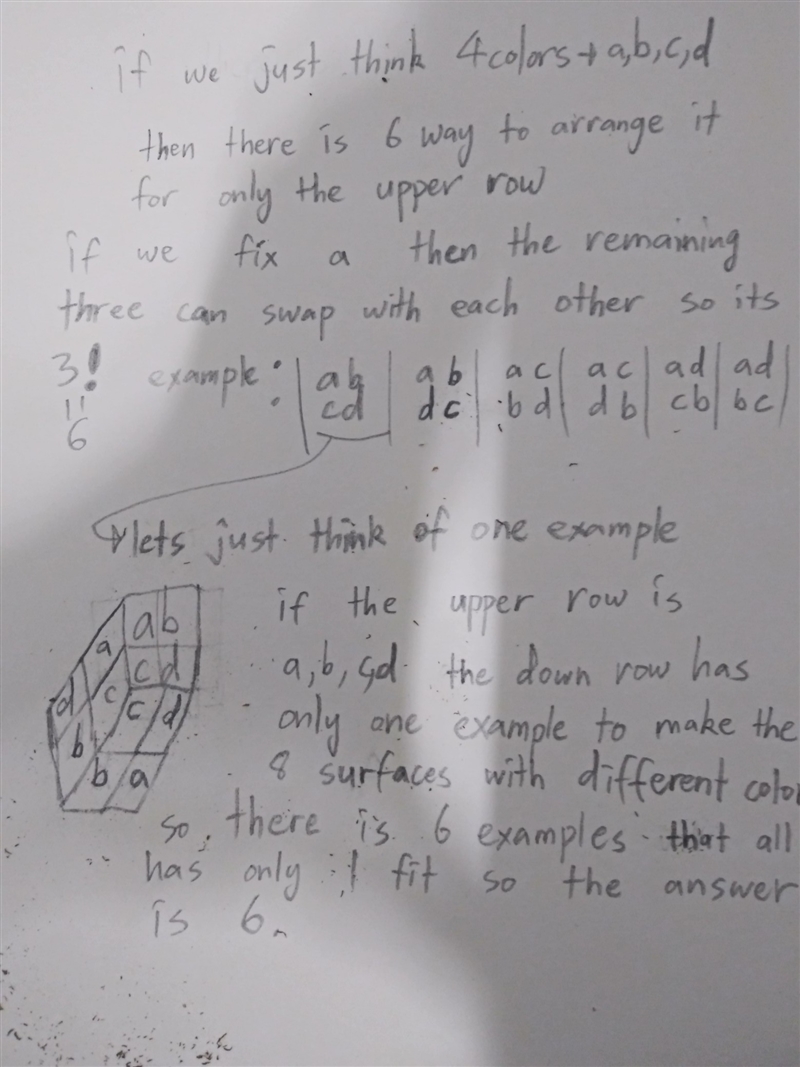 if we just think 4colors→a,b,c,d
then there is 6 way to arrange it
for only the upper row
if we fix a then the remaining
three can swap with each other so its
3! example: | ab | ab | ac | ac | ad | ad |
|| cd | dc | bd | db | cb | bc |
6
lets just think of one example
if the upper row is
a,b,c,d the down row has
only one example to make the
8 surfaces with different color
so, there is 6 examples that all
has only 1 fit so the answer
is 6.
ab
a cd
d c c d
b
b a